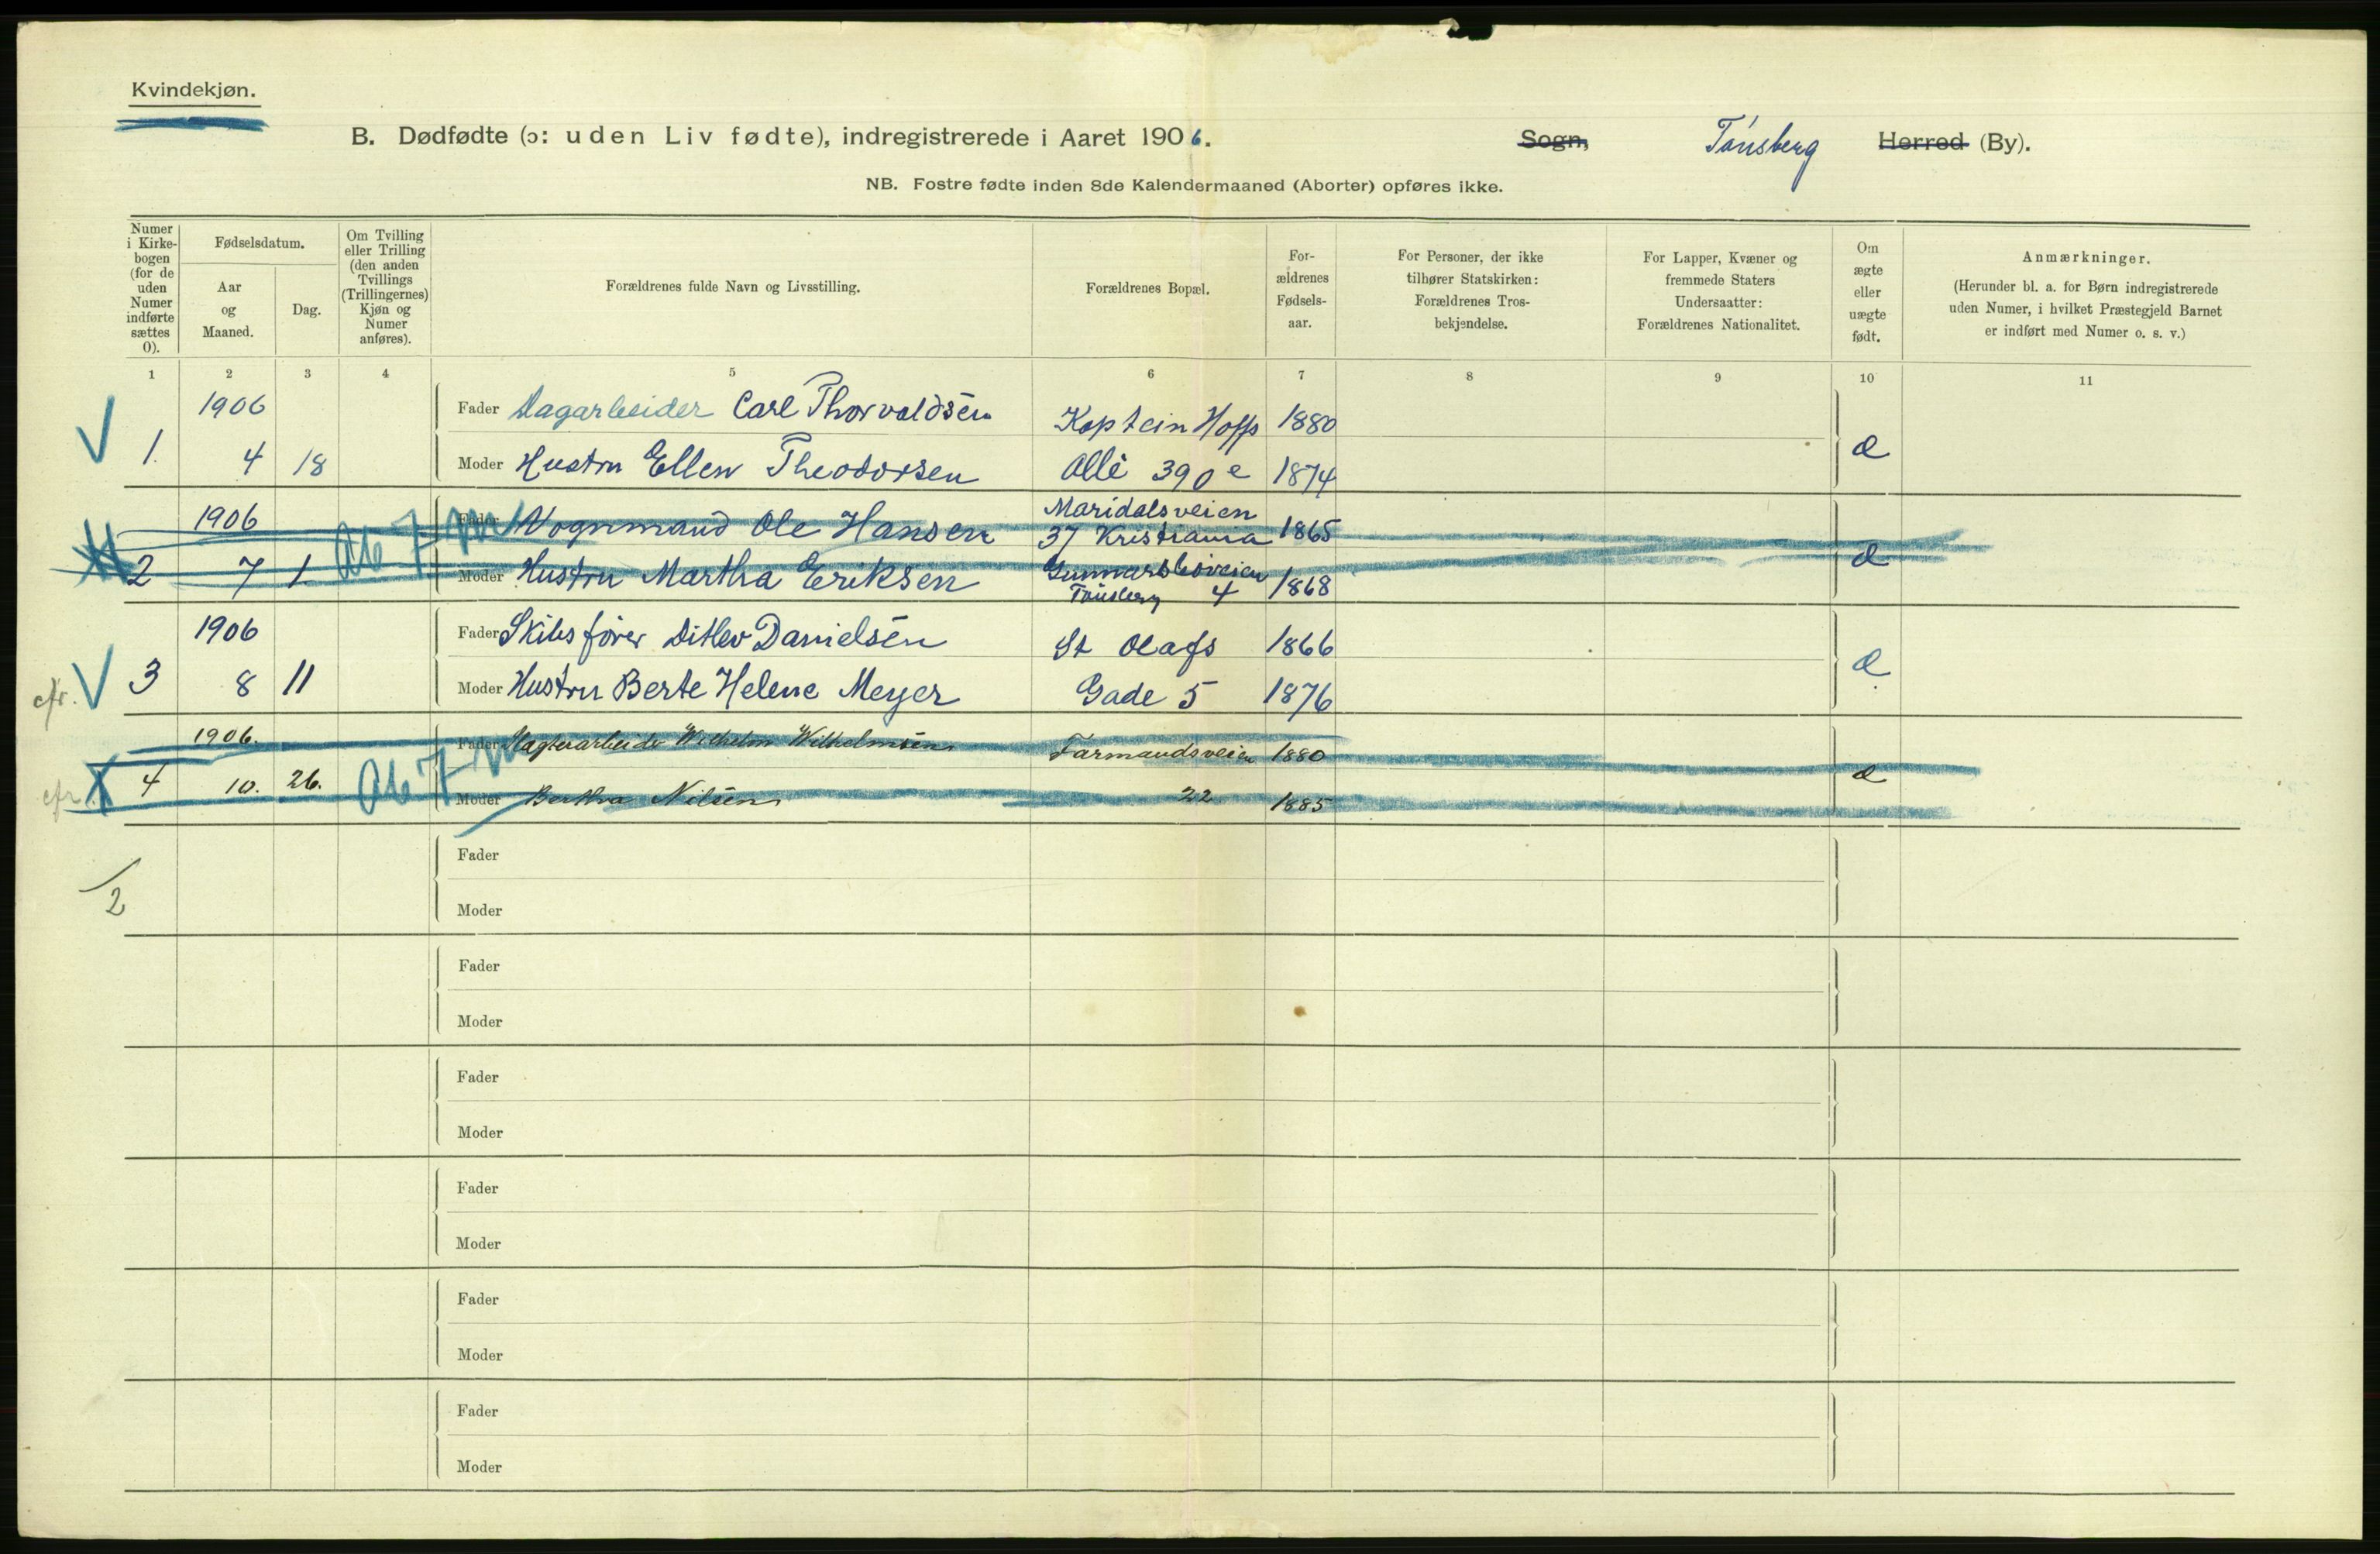 Kvindekjøn.
B. Dødfødte (ɔ: uden Liv fødte), indregistrerede i Aaret 1906.
Sogn, Tønsberg Herred (By).
NB. Fostre fødte inden 8de Kalendermaaned (Aborter) opføres ikke.
Numer i Kirke-bogen (for de uden Numer indførte sættes 0).
Fødselsdatum.
Aar og Maaned.
Dag.
Om Tvilling eller Trilling (den anden Tvillings (Trillingernes) Kjøn og Numer anføres).
Forældrenes fulde Navn og Livsstilling.
Forældrenes Bopæl.
For-ældrenes Fødsels-aar.
For Personer, der ikke tilhører Statskirken: Forældrenes Tros-bekjendelse.
For Lapper, Kvæner og fremmede Staters Undersaatter: Forældrenes Nationalitet.
Om ægte eller uægte født.
Anmærkninger. (Herunder bl. a. for Børn indregistrerede uden Numer, i hvilket Præstegjeld Barnet er indført med Numer o. s. v.)
1 2 3 4 5 6 7 8 9 10 11
1906 Fader Dagarbeider Carl Thorvaldsen Kaptein Hoffs 1880
1. 4 18 Moder Hustru Ellen Theodorsen Allé 390 e 1874 æ
1906 Fader Vognmand Ole Hansen Maridalsveien 37 Kristiania 1865
2 7 1 Ab 7 m Moder Hustru Martha Eriksen Gunnarsboveien 4 Tønsberg 1868 æ
1906 Fader Skibsfører Ditlev Danielsen St Olafs 1866
cfr. 3 8 11 Moder Hustru Berte Helene Meyer Gade 5 1876 æ
1906. Fader Slagterarbeider Wilhelm Wilhelmsen Farmandsveien 1880
cfr. 4 10. 26. Ab 7 m Moder Bertha Nilsen 22 1885 æ
Fader
2
Moder
Fader
Moder
Fader
Moder
Fader
Moder
Fader
Moder
Fader
Moder